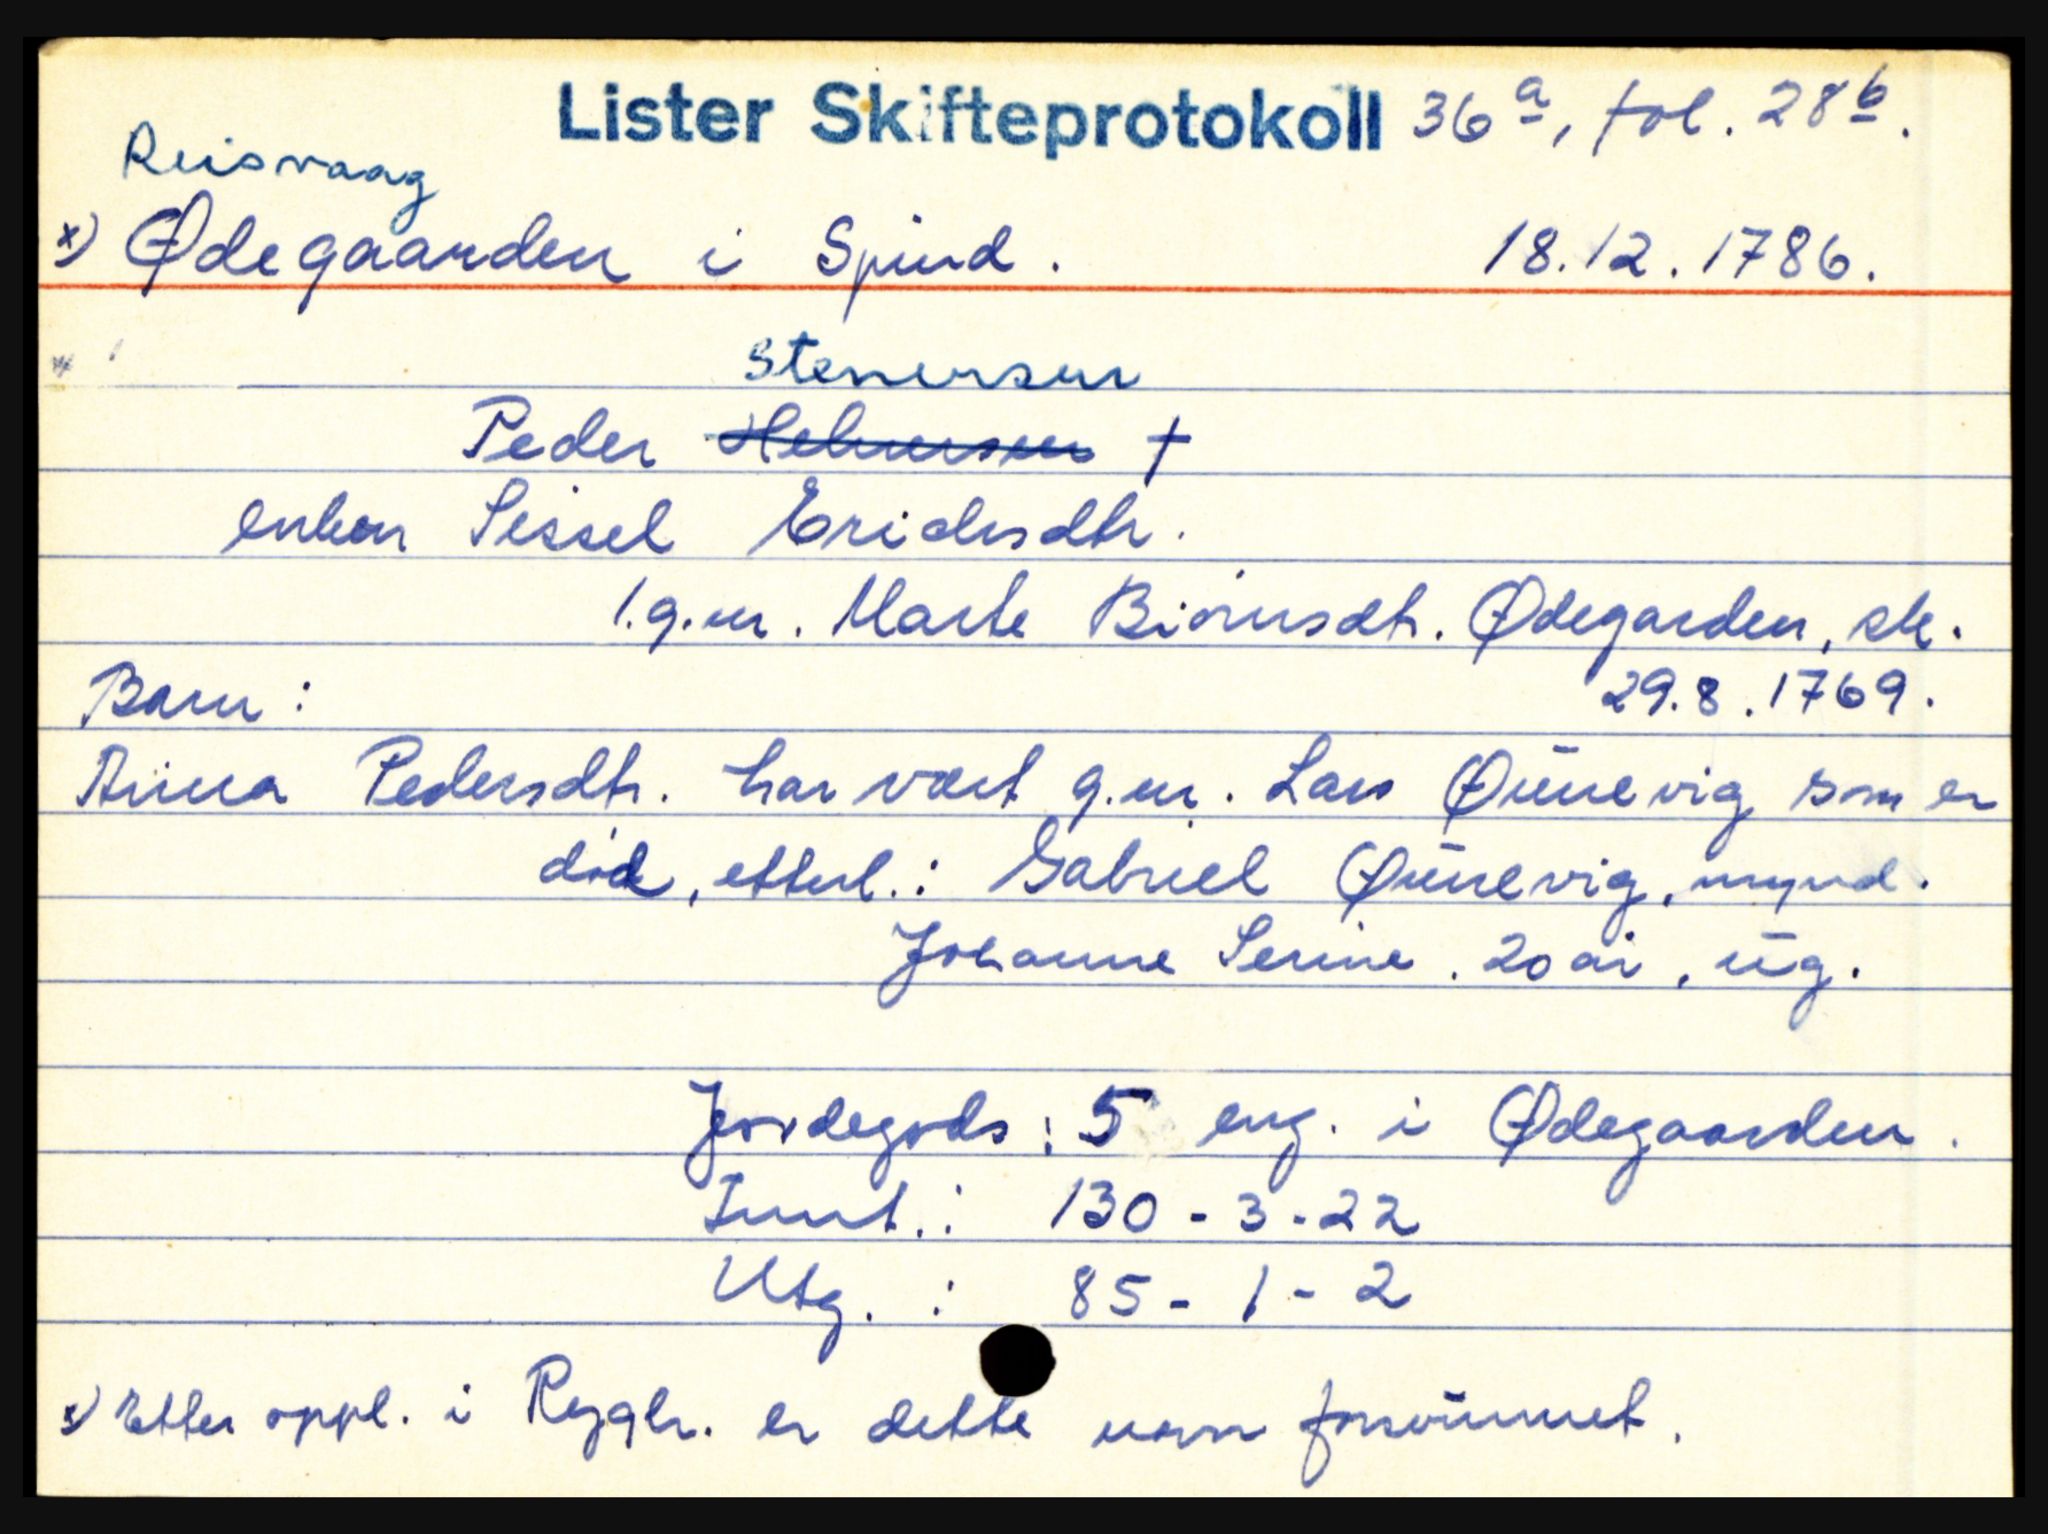 Lister Skifteprotokoll 36a, fol. 28b.
Reisvaag
x) Ødegaarden i Spind. 18.12.1786.
Stenersen
Peder Helmersen †
enken Sissel Erichsdtr.
1.g.m. Marte Biørnsdtr. Ødegarden, sk.
Barn: 29.8.1769.
Anna Pedersdtr. har vært g.m. Lars Øunevig som er
død, etterl.: Gabriel Øunevig, mynd.
Johanne Serine. 20 år, ug.
Jordegods: 5 eng. i Ødegaarden.
Innt.: 130-3-22
Utg.: 85-1-2
x) Etter oppl. i er dette navn forsvunnet.